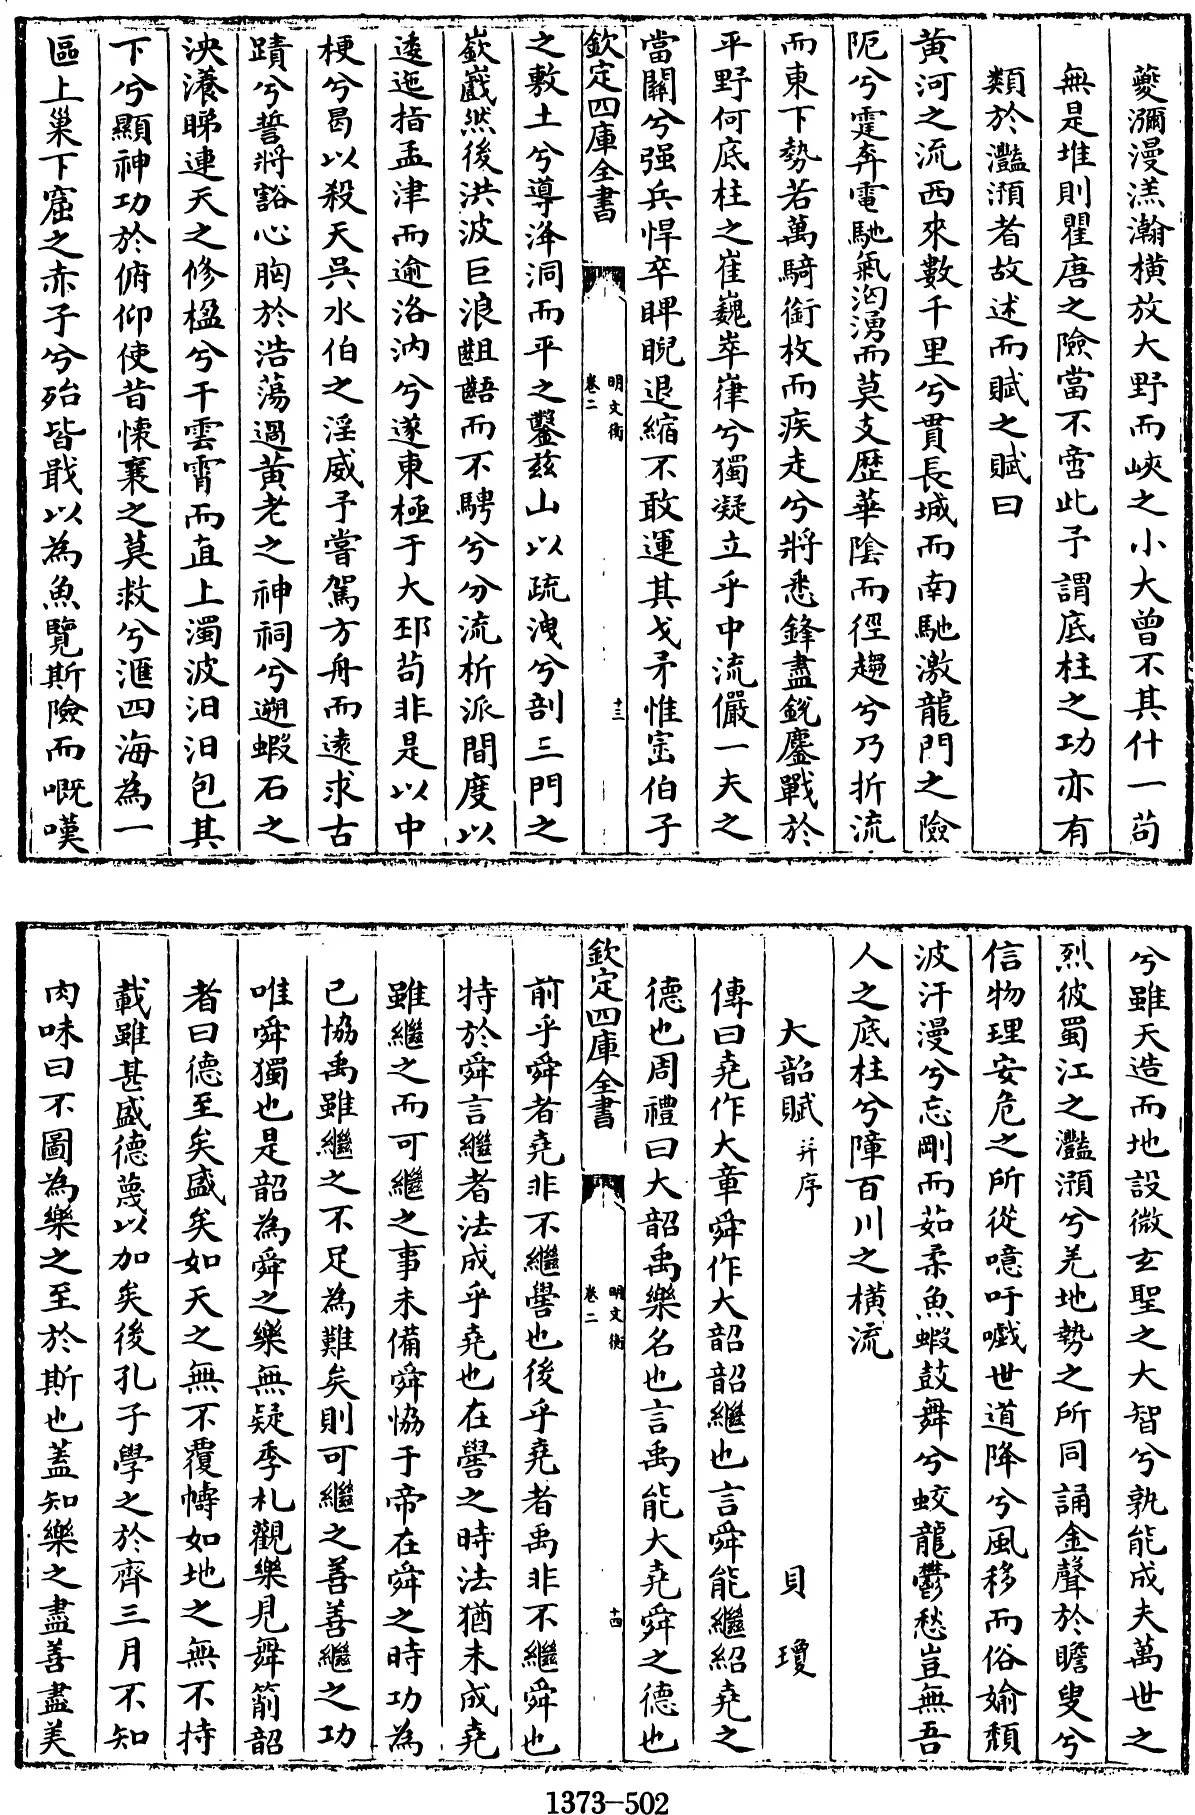 夔瀰漫滉瀚橫放大野而峽之小大曾不其什一苟
無是堆則瞿唐之險當不啻此予謂底柱之功亦有
類於灩澦者故述而賦之賦曰
黄河之流西來數千里兮貫長城而南馳激龍門之險
阨兮霆奔電馳氣洶湧而莫支歴華陰而徑趨兮乃折流
而東下勢若萬騎銜枚而疾走兮將悉鋒盡銳鏖戰於
平野何底柱之崔巍崒嵂兮獨凝立乎中流儼一夫之
當關兮强兵悍卒睥睨退縮不敢運其戈矛惟宻伯子
欽定四庫全書
明文衡
卷二
十三
之敷土兮導洚洞而平之鑿兹山以疏洩兮剖三門之
嶔巇然後洪波巨浪齟齬而不騁兮分流析派間度以
逶迤指孟津而逾洛汭兮遂東極于大邳苟非是以中
梗兮曷以殺天吳水伯之淫威予嘗駕方舟而逺求古
蹟兮誓將豁心胸於浩蕩過黄老之神祠兮遡蝦石之
泱瀁睇連天之修楹兮干雲霄而直上濁波汨汨包其
下兮顯神功於俯仰使昔懐襄之莫救兮滙四海為一
區上巢下窟之赤子兮殆皆戢以為魚覽斯險而嘅嘆
兮雖天造而地設微玄聖之大智兮孰能成夫萬世之
烈彼蜀江之灩澦兮羌地勢之所同誦金聲於瞻叟兮
信物理安危之所從噫吁嚱世道降兮風移而俗婾頽
波汗漫兮忘剛而茹柔魚蝦鼓舞兮蛟龍鬱愁豈無吾
人之底柱兮障百川之橫流
大韶賦并序 貝瓊
傳曰堯作大章舜作大韶韶繼也言舜能繼紹堯之
德也周禮曰大韶禹樂名也言禹能大堯舜之德也
欽定四庫全書
明文衡
卷二
十四
前乎舜者堯非不繼嚳也後乎堯者禹非不繼舜也
特於舜言繼者法成乎堯也在嚳之時法猶未成堯
雖繼之而可繼之事未備舜恊于帝在舜之時功為
已協禹雖繼之不足為難矣則可繼之善善繼之功
唯舜獨也是韶為舜之樂無疑季札觀樂見舞箾韶
者曰德至矣盛矣如天之無不覆幬如地之無不持
載雖甚盛德蔑以加矣後孔子學之於齊三月不知
肉味曰不圖為樂之至於斯也蓋知樂之盡善盡美
1373—502